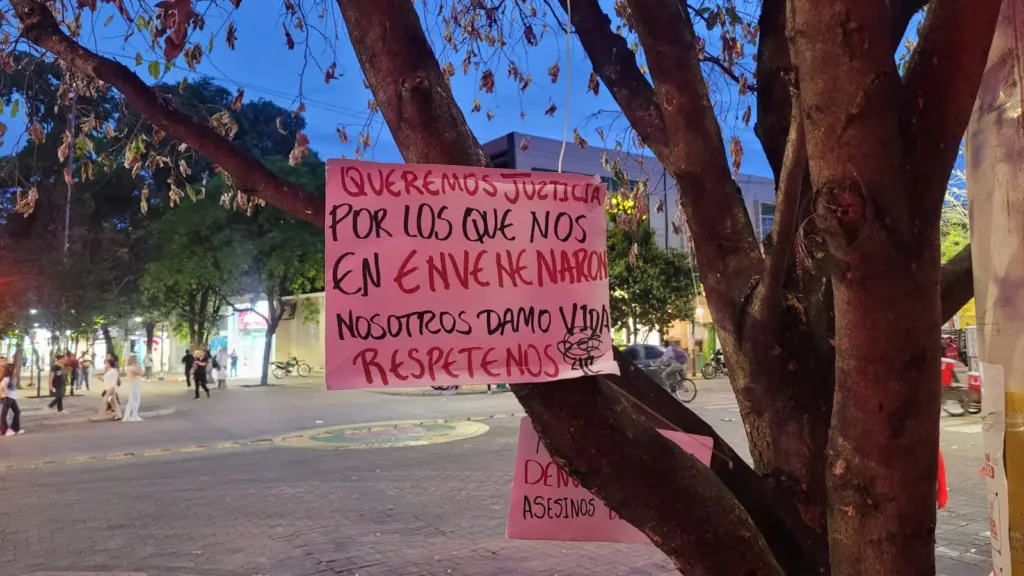 QUEREMOS JUSTICIA
POR LOS QUE NOS
EN ENVENENARON
NOSOTROS DAMO VIDA
RESPETENOS
ASESINOS